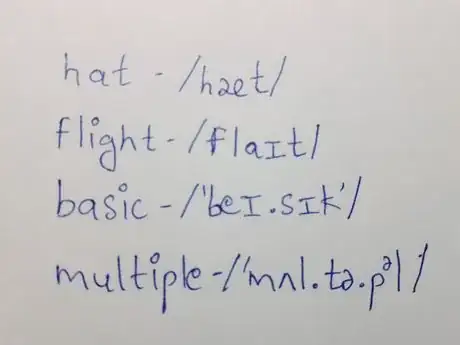 hat - /hæt/
flight - /flaɪt/
basic - /'beɪ.sɪk'/
multiple - /'mʌl.tə.pᵊl/